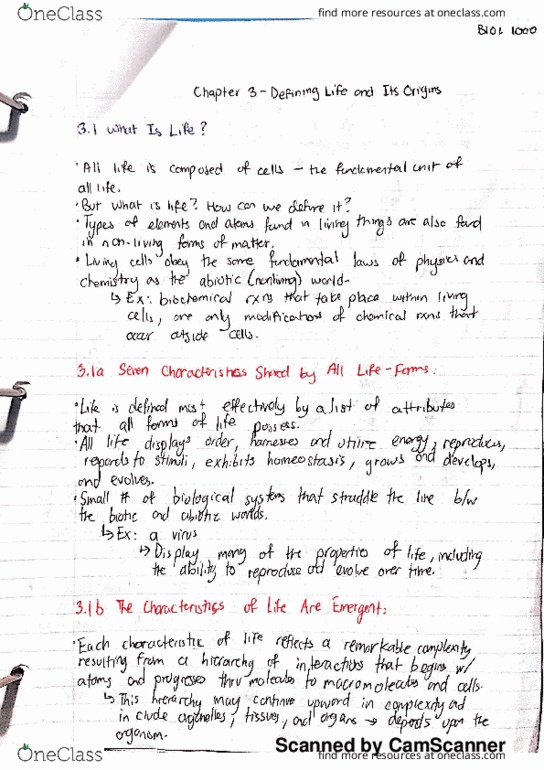 OneClass
find more resources at oneclass.com
BIOL 1000
Chapter 3 - Defining Life and Its Origins
3.1 What Is Life?
· All life is composed of cells – the fundamental unit of
all life.
· But what is life? How can we define it?
· Types of elements and atoms found in living things are also found
in non-living forms of matter.
· Living cells obey the same fundamental laws of physics and
chemistry as the abiotic (nonliving) world-
↳ Ex: biochemical rxns that take place within living
cells, are only modifications of chemical rxns that
occur outside cells.
3.1a Seven Characteristics Shared by All Life-Forms:
· Life is defined most effectively by a list of attributes
that all forms of life possess.
· All life displays order, harnesses and utilize energy, reproduces,
responds to stimuli, exhibits homeostasis, grows and develops,
and evolves.
· Small # of biological systems that straddle the line b/w
the biotic and abiotic worlds.
↳ Ex: a virus
↳ Display many of the properties of life, including
the ability to reproduce and evolve over time.
3.1b The Characteristics of Life Are Emergent:
· Each characteristic of life reflects a remarkable complexity
resulting from a hierarchy of interactions that begins w/
atoms and progresses thru molecules to macromolecules and cells.
↳ This hierarchy may continue upward in complexity and
include organelles, tissues, and organs → depends upon the
organism.
OneClass
Scanned by CamScanner
find more resources at oneclass.com